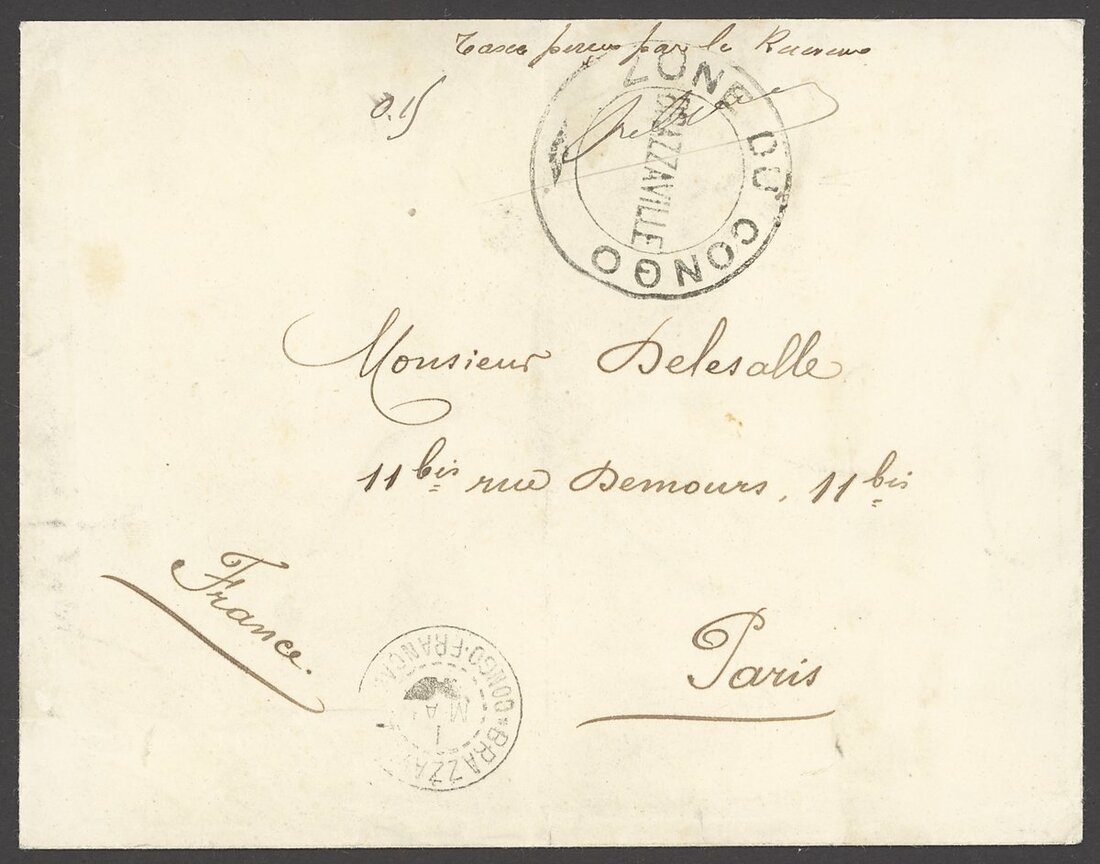 Taxe perçue par le Receveur
0.15
ZONE DU CONGO
BRAZZAVILLE
Monsieur Delesalle
11 bis rue Demours, 11 bis
France.
Paris
CONGO-FRANÇA
1
MA
BRAZZA